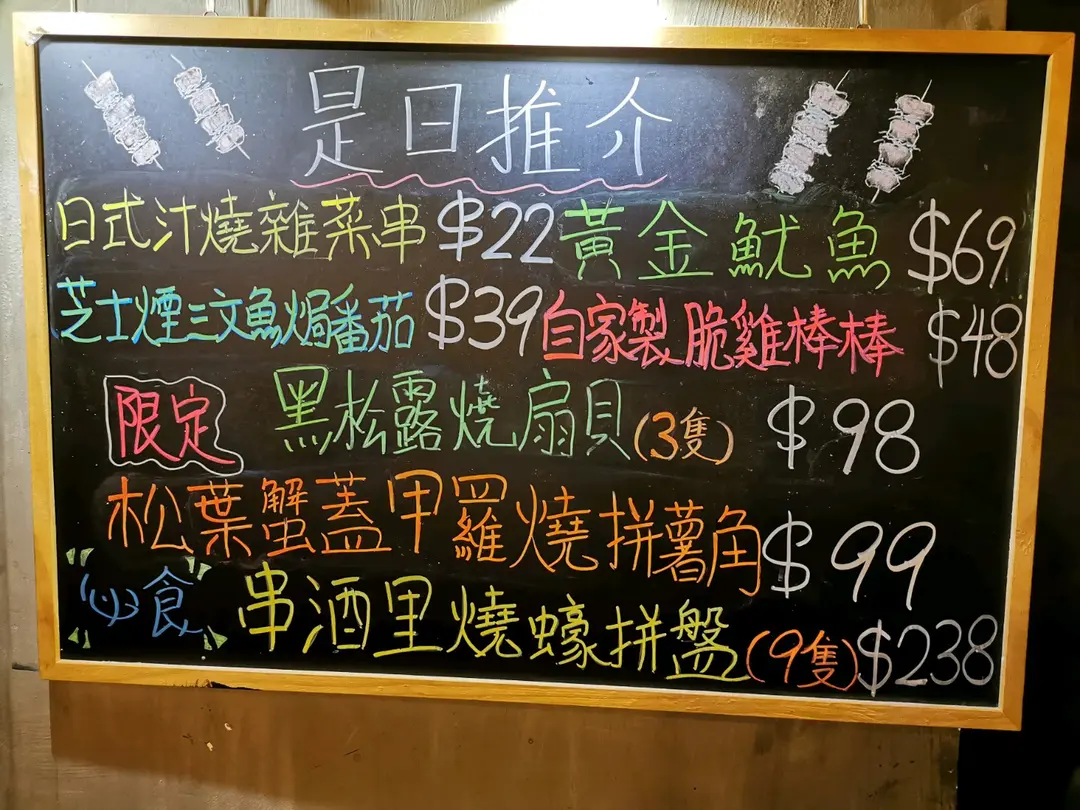 是日推介
日式汁燒雜菜串 $22 黃金魷魚 $69
芝士煙三文魚焗番茄 $39 自家製脆雞棒棒 $48
限定 黑松露燒扇貝(3隻) $98
松葉蟹蓋甲羅燒拼薯角 $99
必食 串酒里燒蠔拼盤(9隻) $238